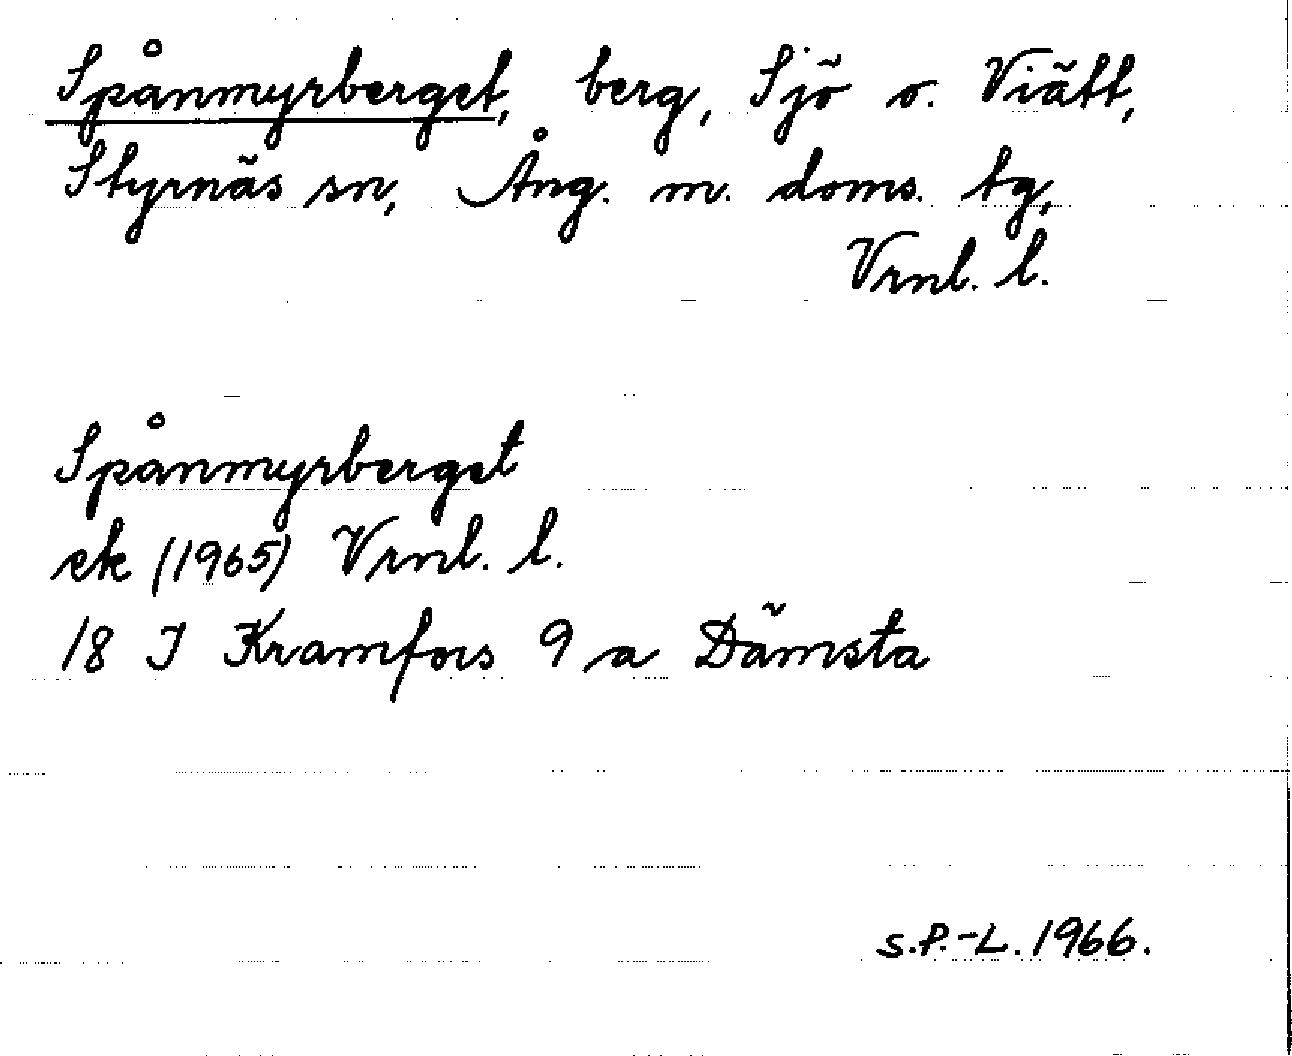 Spånmyrberget, berg, Sjö o. Viätt,
Styrnäs sn, Ång. m. doms. tg,
Vrnl. l.
Spånmyrberget
ek (1965) Vrnl. l.
18 I Kramfors 9 a Dämsta
S.P.-L. 1966.